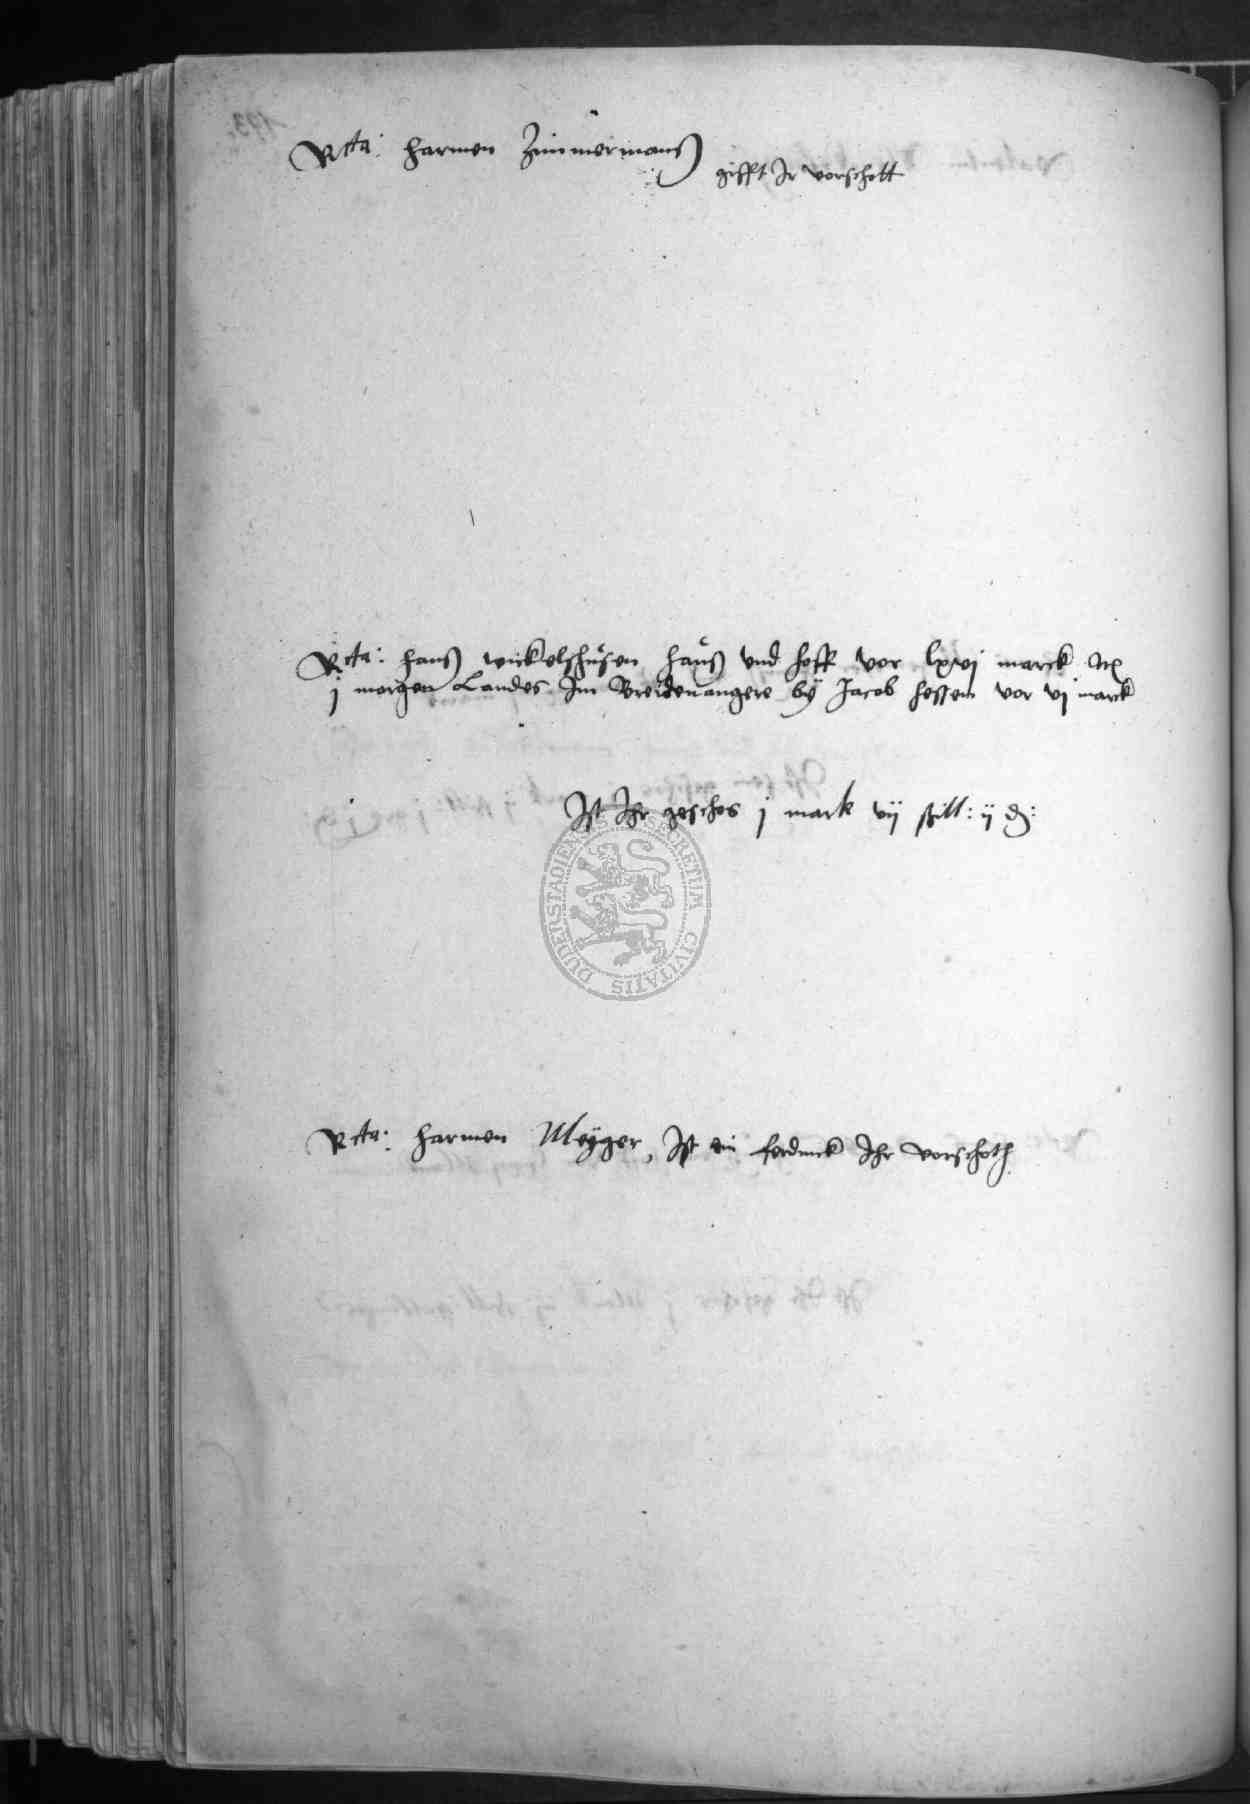 Rcta: Harmen Zimmermans
gifft Ir vorschott
Rcta: Hans wickelshusen haus vnd hoff vor lxvj marck It
j morgen Landes Im Breidenangere by Jacob hessen vor vj marck
Ist Ihr geschos j mark vij ßill: ij d:
SECRETUM CIVITATIS DUDERSTADIENSIS
Rcta: Harmen Meyger, Ist ein ferdinck Ihr vorschoth